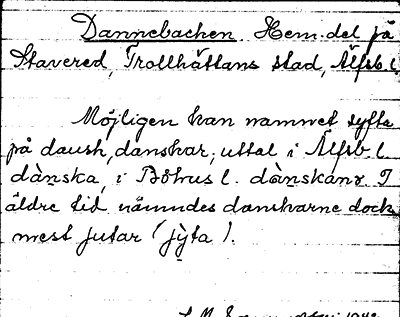 Dannebachen Hem.del på
Stavered, Trollhättans stad, Älfsb. l.
Möjligen kan namnet syfta
på dansk, danskar, uttal i Älfsb l.
dànska, i Bohus l. dànskanr I
äldre tid nämndes danskarne dock
mest jutar (jỳta).